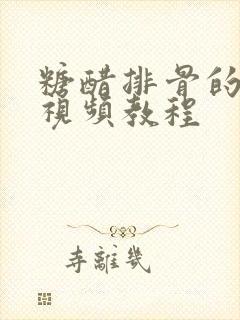 糖醋排骨的
視頻教程
寺離幾